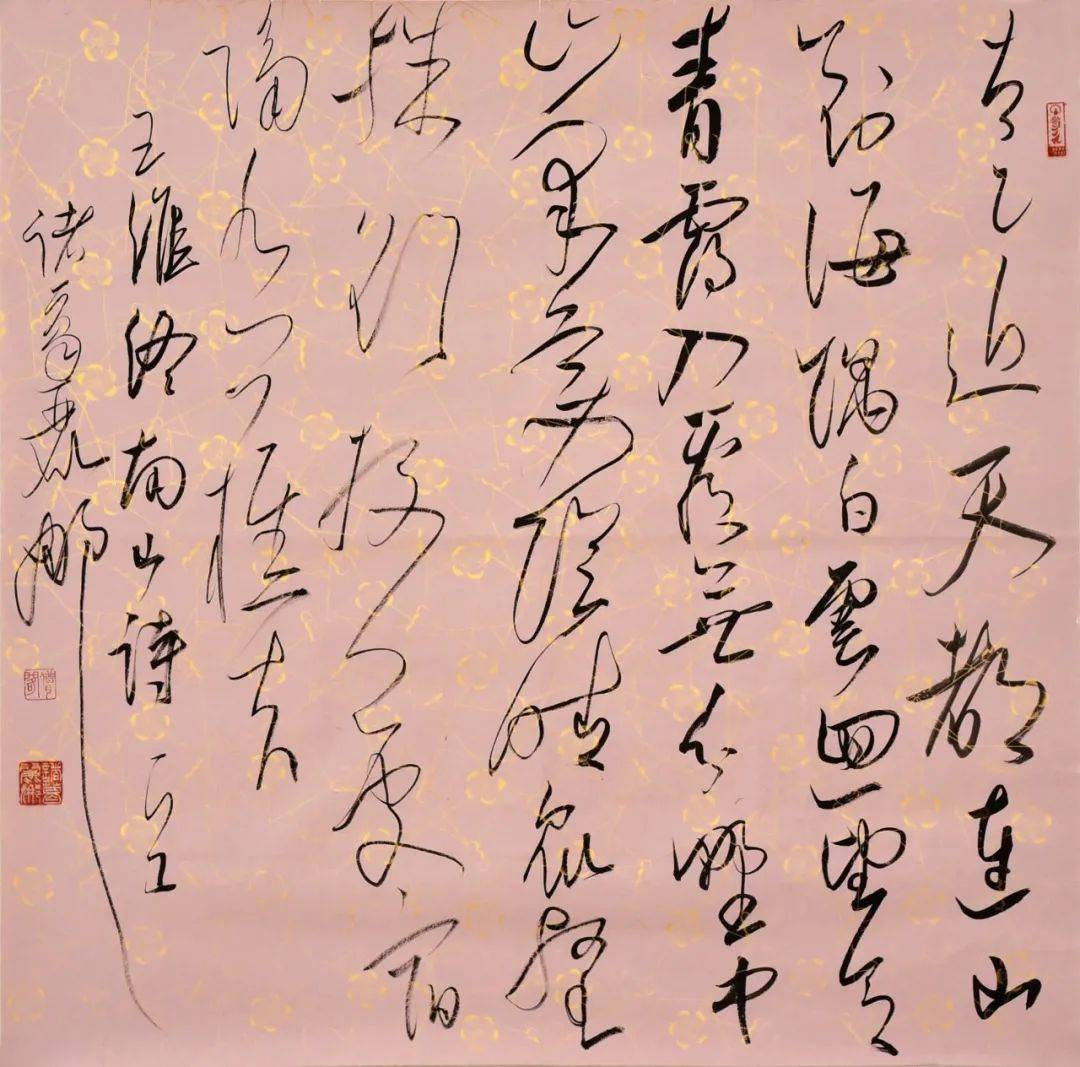 太乙近天都連山
到海隅白雲迴望合
青靄入看無分野中
峯變陰晴眾壑
殊欲投人處宿
隔水問樵夫
王維終南山詩一首
诸葛麗娜